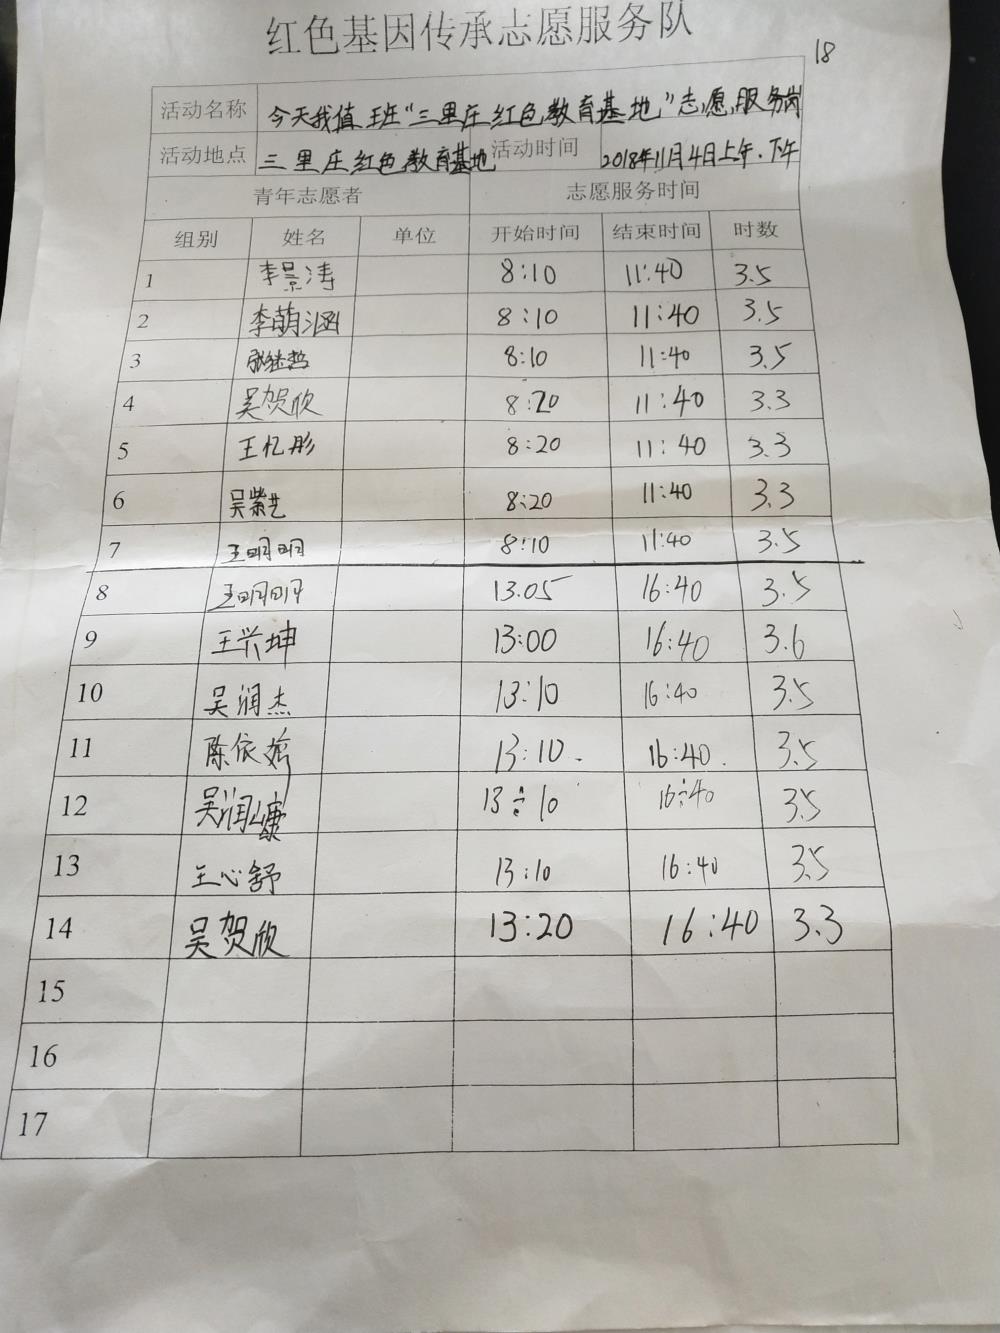 红色基因传承志愿服务队
18
活动名称 今天我值班“三里庄红色教育基地”志愿服务岗
活动地点 三里庄红色教育基地 活动时间 2018年11月4日上午.下午
青年志愿者 志愿服务时间
组别 姓名 单位 开始时间 结束时间 时数
1 李景涛 8:10 11:40 3.5
2 李萌涵 8:10 11:40 3.5
3 张继哲 8:10 11:40 3.5
4 吴贺欣 8:20 11:40 3.3
5 王忆彤 8:20 11:40 3.3
6 吴紫艺 8:20 11:40 3.3
7 王明明 8:10 11:40 3.5
8 王明明 13.05 16:40 3.5
9 王兴坤 13:00 16:40 3.6
10 吴润杰 13:10 16:40 3.5
11 陈依 13:10. 16:40. 3.5
12 吴润 13:10 16:40 3.5
13 王心舒 13:10 16:40 3.5
14 吴贺欣 13:20 16:40 3.3
15
16
17